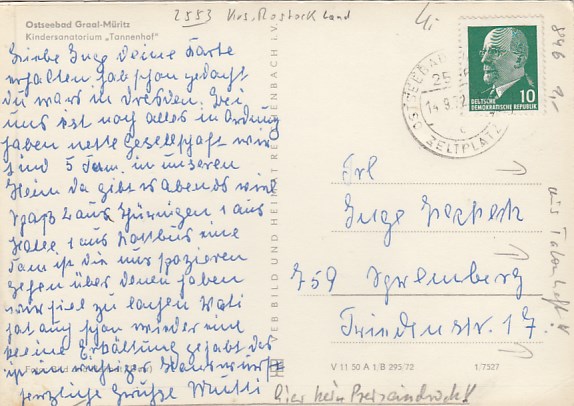 2553 Krs. Rostock Land
Ostseebad Graal-Müritz
Kindersanatorium „Tannenhof"
Liebe Inge deine Karte
erhalten hab schon gedacht
du wärs in Dresden. Bei
uns ist noch alles in Ordnung
haben nette Gesellschaft wir
sind 5 Fam. in unseren
Heim da gibt es Abends viel
Spaß 2 aus Thüringen 1 aus
Halle 1 aus Kottbus eine
Fam ist die uns
gegen über denen haben
wir viel zu lachen Vati
hat auch schon wieder eine
kleine Erkältung gehabt der
ist ein
herzliche Grüße Mutti
VEB BILD UND HEIMAT REICHENBACH I. V.
OSTSEEBAD
25
14.9.72
c
ZELTPLATZ
10
DEUTSCHE
DEMOKRATISCHE REPUBLIK
846 1,-
Frl
Inge
759 Spremberg
Friedenstr. 17.
V 11 50 A 1/B 295/72 1/7527
Hier kein Preiseindruck!